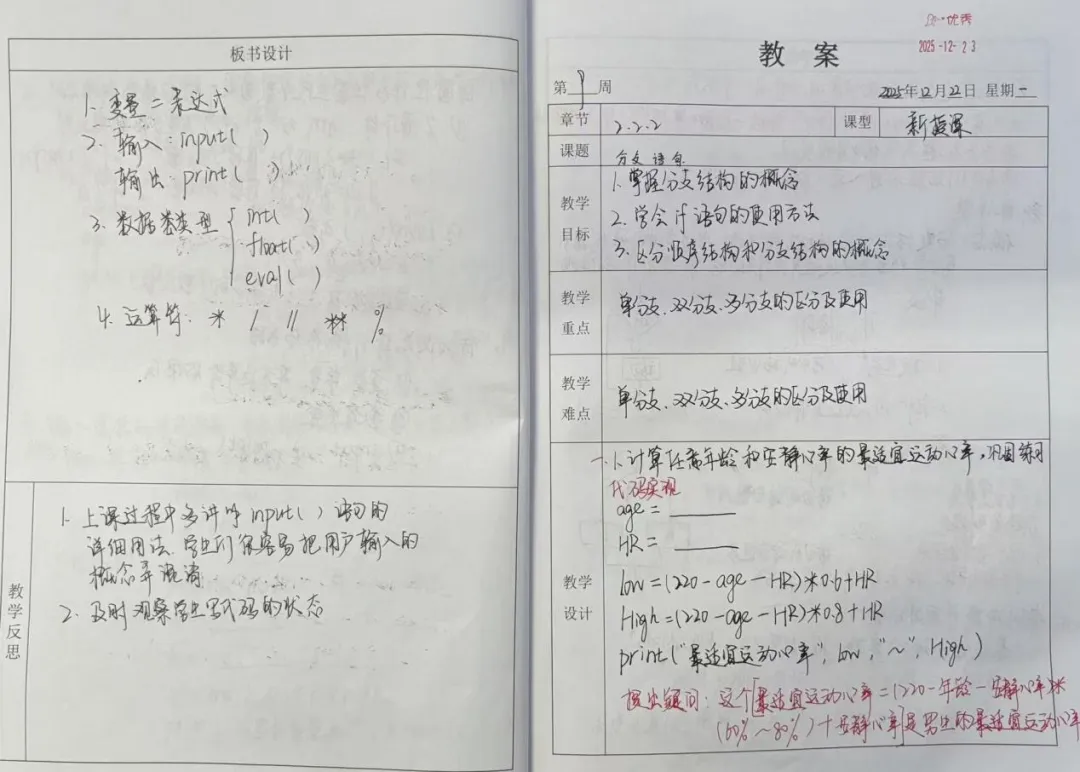 板书设计
1. 变量 = 表达式
2. 输入: input( )
输出: print( )
3. 数据类类型 int( )
float( )
eval( )
4. 运算符: * / // ** %
教学反思
1. 上课过程中多讲讲 input( ) 语句的
详细用法、学生们很容易把用户输入的
概念弄混淆
2. 及时观察学生写代码的状态
2025-12-23
教 案
第 周 2025年12月22日 星期一
章节 2.2.2 课型 新授课
课题 分支语句
教学目标
1. 掌握分支结构的概念
2. 学会if语句的使用方法
3. 区分顺序结构和分支结构的概念
教学重点
单分支、双分支、多分支的区分及使用
教学难点
单分支、双分支、多分支的区分及使用
教学设计
一、1. 计算任意年龄和安静心率的最适宜运动心率,巩固练习
代码实现
age = ______
HR = ______
low=(220-age-HR)*0.6+HR
High=(220-age-HR)*0.8+HR
print("最适宜运动心率", low, "~", High)
提出疑问: 这个[最适宜运动心率=(220-年龄-安静心率)*
(60%~80%)+安静心率]是男生的最适宜运动心率